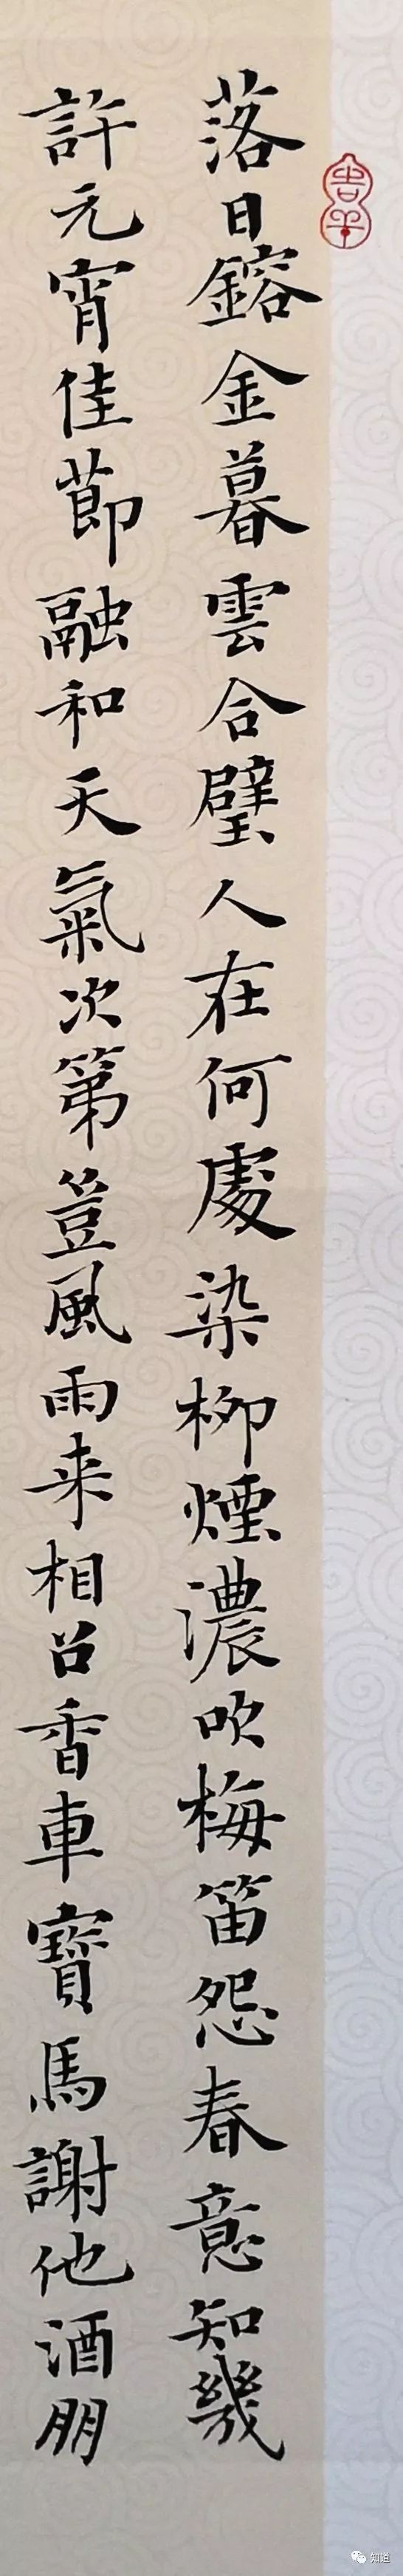 落日鎔金暮雲合璧人在何處染柳煙濃吹梅笛怨春意知幾
許元宵佳節融和天氣次第豈風雨来相召香車寶馬謝他酒朋
吉平
知道